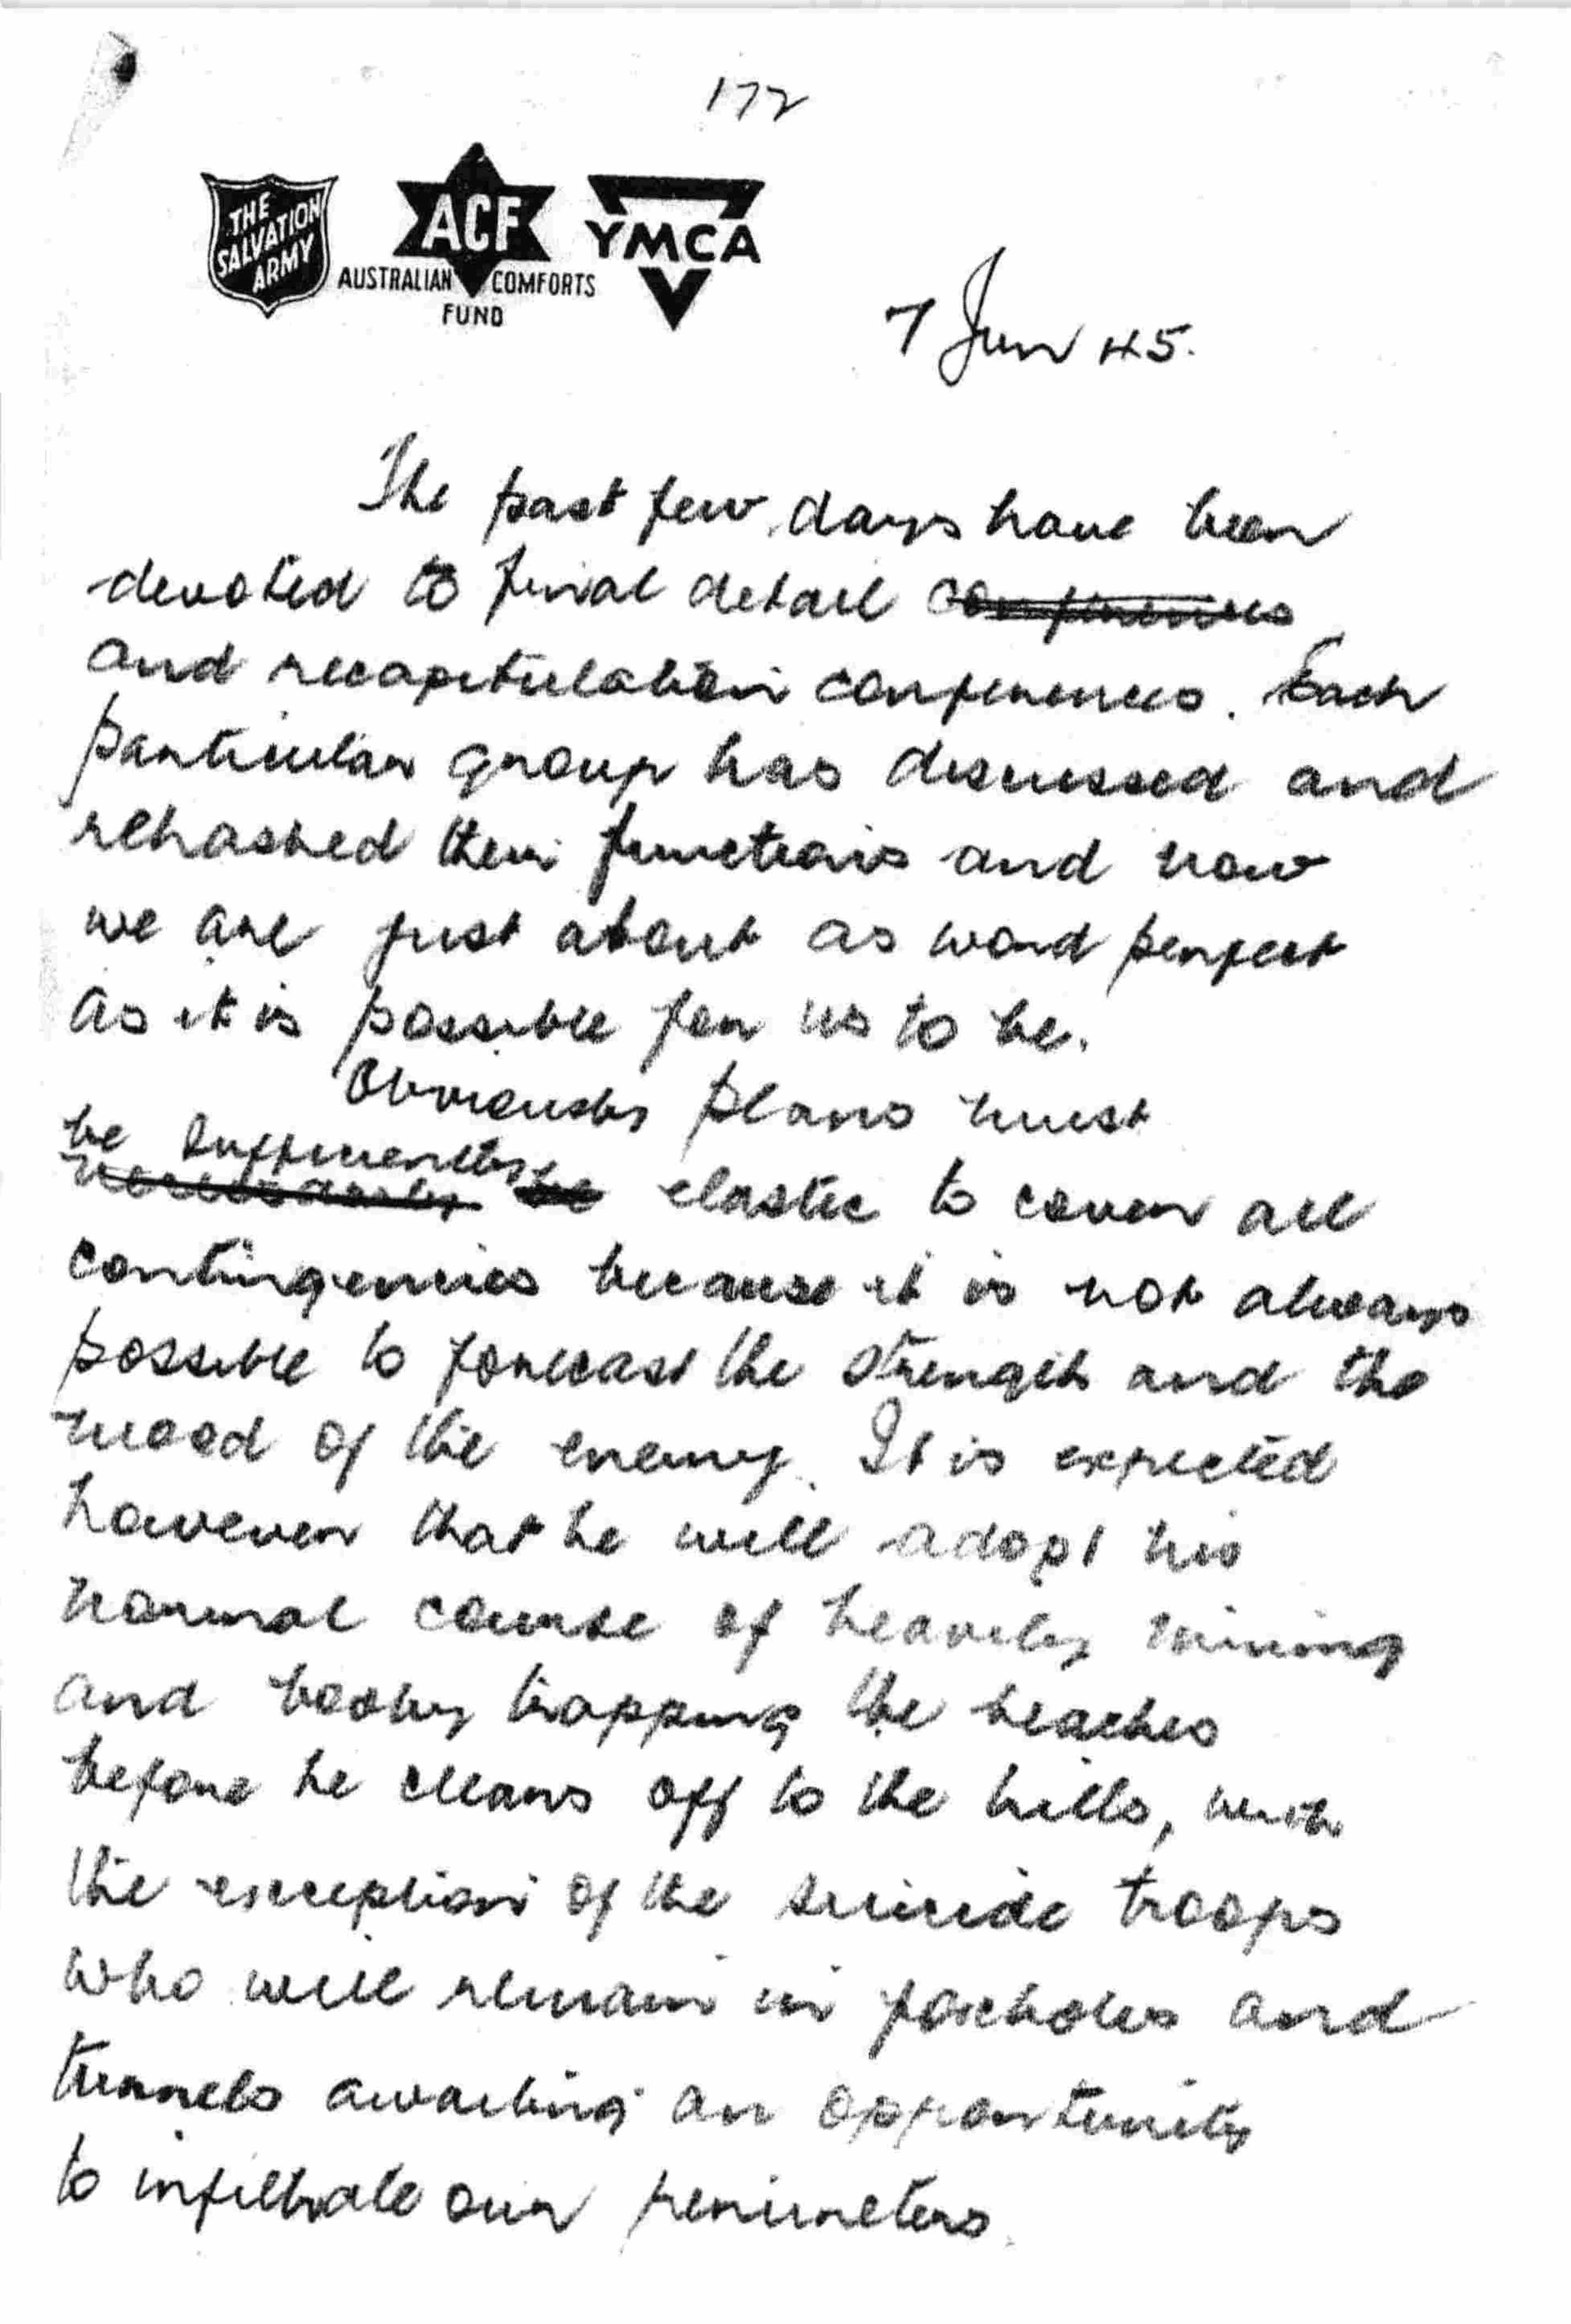 172
THE SALVATION ARMY
ACF
AUSTRALIAN COMFORTS FUND
YMCA
7 Jun 45.
The past few days have been
devoted to final detail conferences
and recapitulation conferences. Each
particular group has discussed and
rehashed their functions and now
we are just about as word perfect
as it is possible for us to be.
Obviously plans must
be sufficiently
necessarily be elastic to cover all
contingencies because it is not always
possible to forecast the strength and the
mood of the enemy. It is expected
however that he will adopt his
normal course of heavily mining
and booby trapping the beaches
before he clears off to the hills, with
the exception of the suicide troops
who will remain in foxholes and
tunnels awaiting an opportunity
to infiltrate our perimeters.